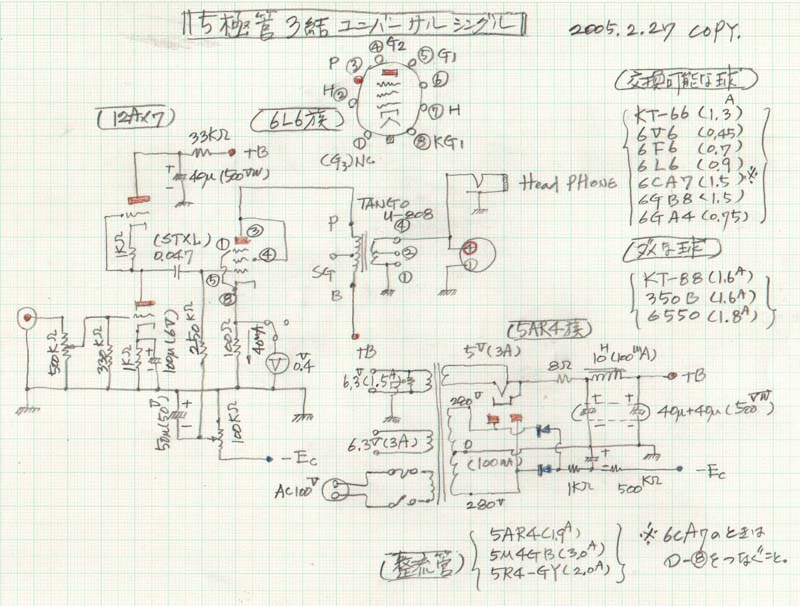 5極管3結ユニバーサルシングル
2005.2.27 COPY.
④G2
P
③
⑤G1
H
②
⑥
⑦H
①
⑧KG1
(G3)NC
(12AX7)
(6L6族)
(交換可能な球)
KT-66(1.3A)
6V6(0.45)
6F6(0.7)
6L6(0.9)
6CA7(1.5)※
6GB8(1.5)
6GA4(0.75)
(ダメな球)
KT-88(1.6A)
350B(1.6A)
6550(1.8A)
33KΩ
+B
40μ(500VW)
1KΩ
(STXL)
0.047
①
③
④
⑤
⑧
P
SG
B
+B
TANGO
U-808
④
②
①
Head PHONE
500KΩ
330KΩ
1KΩ
100μ(6V)
250KΩ
100Ω
40mA
V
0.4V
50μ(50V)
100KΩ
-Ec
(5AR4族)
5V(3A)
6.3V(1.5A)
6.3V(3A)
AC100V
280V
0
(100mA)
280V
8Ω
10H(100mA)
+B
40μ+40μ(500VW)
1KΩ
500KΩ
-Ec
(整流管)
5AR4(1.9A)
5M4GB(3.0A)
5R4-GY(2.0A)
※ 6CA7のときは
①-⑧をつなぐこと。